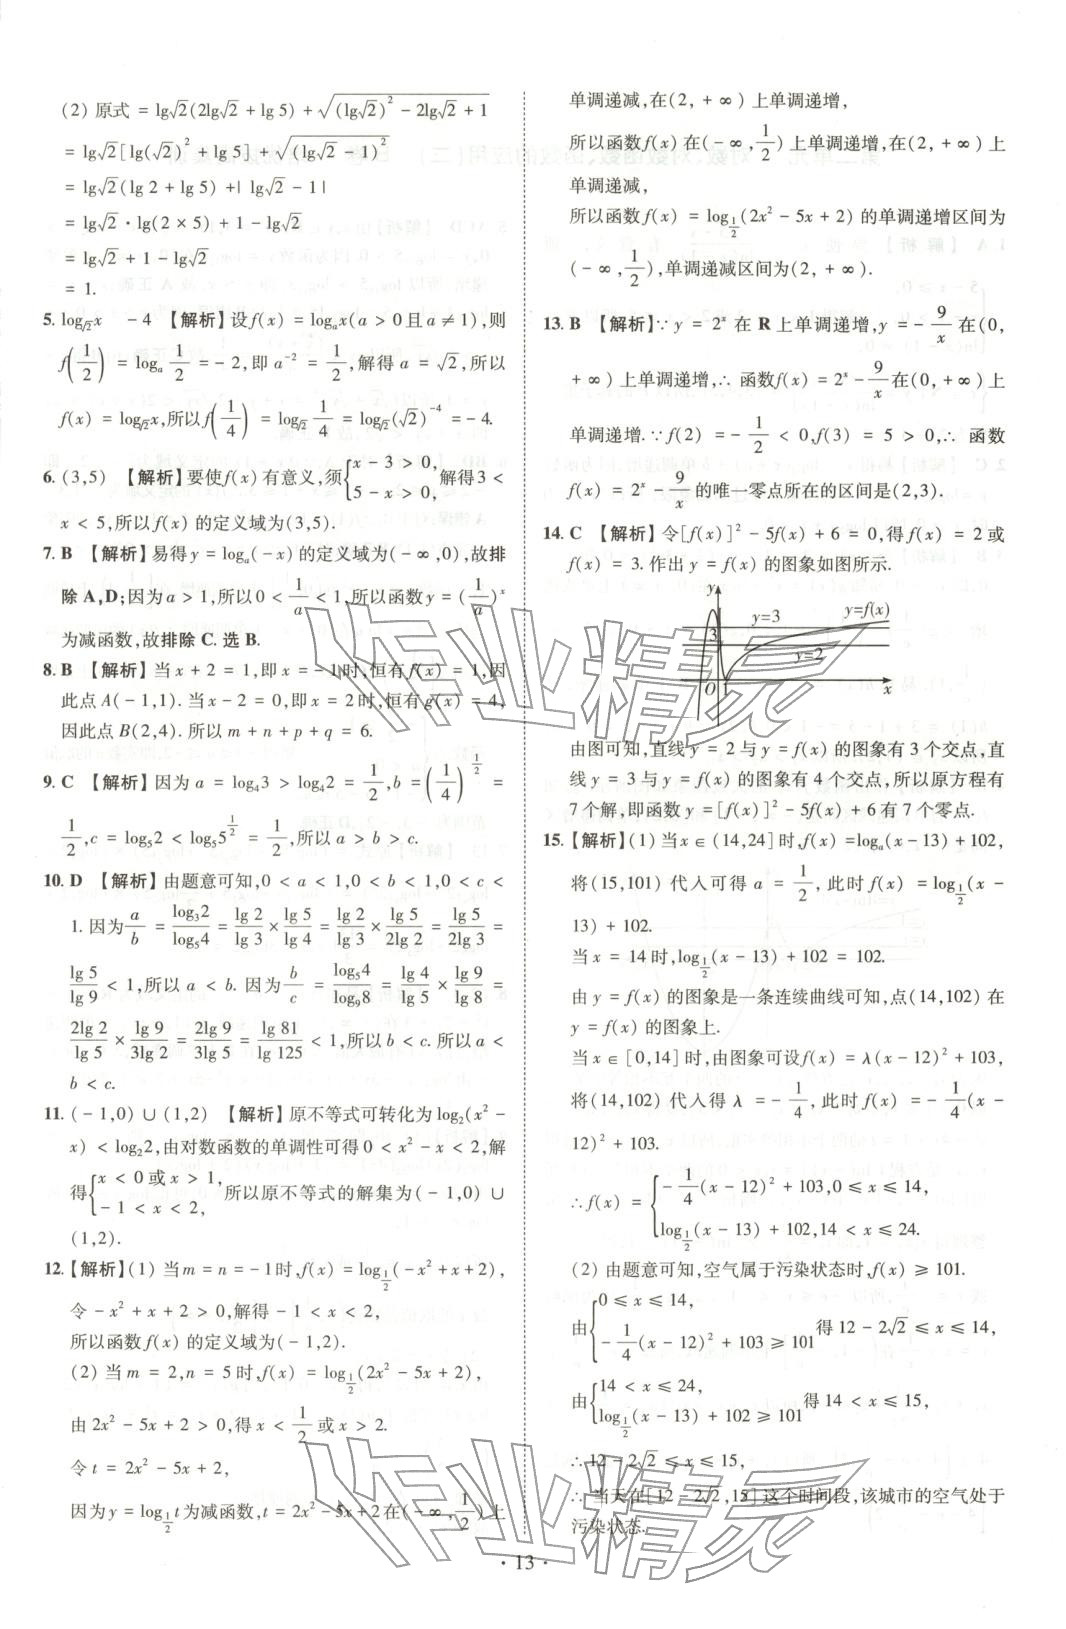 (2) 原式 = lg√2(2lg√2 + lg 5) + √((lg√2)² − 2lg√2 + 1)
= lg√2[lg(√2)² + lg 5] + √((lg√2 − 1)²)
= lg√2(lg 2 + lg 5) + | lg√2 − 1 |
= lg√2 · lg(2 × 5) + 1 − lg√2
= lg√2 + 1 − lg√2
= 1.
5. log_√2 x −4 【解析】设f(x) = logₐx(a > 0且a ≠ 1),则
f(1/2) = logₐ 1/2 = − 2,即 a⁻² = 1/2,解得 a = √2,所以
f(x) = log_√2 x,所以f(1/4) = log_√2 1/4 = log_√2 (√2)⁻⁴ = − 4.
6. (3,5) 【解析】要使f(x)有意义,须{x − 3 > 0, 5 − x > 0, 解得3 <
x < 5,所以f(x) 的定义域为(3,5).
7. B 【解析】易得y = logₐ(− x) 的定义域为(− ∞ ,0),故排
除A,D;因为a > 1,所以0 < 1/a < 1,所以函数y = (1/a)ˣ
为减函数,故排除 C. 选 B.
8. B 【解析】当x + 2 = 1,即x = − 1时,恒有f(x) = 1,因
此点A(− 1,1). 当x − 2 = 0,即x = 2时,恒有g(x) = 4,
因此点B(2,4). 所以m + n + p + q = 6.
9. C 【解析】因为 a = log₄3 > log₄2 = 1/2,b = (1/4)^(1/2) =
1/2,c = log₅2 < log₅5^(1/2) = 1/2,所以a > b > c.
10. D 【解析】由题意可知,0 < a < 1,0 < b < 1,0 < c <
1. 因为a/b = log₃2/log₅4 = lg 2/lg 3 × lg 5/lg 4 = lg 2/lg 3 × lg 5/2lg 2 = lg 5/2lg 3 =
lg 5/lg 9 < 1,所以a < b. 因为b/c = log₅4/log₉8 = lg 4/lg 5 × lg 9/lg 8 =
2lg 2/lg 5 × lg 9/3lg 2 = 2lg 9/3lg 5 = lg 81/lg 125 < 1,所以b < c. 所以a <
b < c.
11. (− 1,0) ∪ (1,2) 【解析】原不等式可转化为log₂(x² −
x) < log₂2,由对数函数的单调性可得0 < x² − x < 2,解
得{x < 0或x > 1, − 1 < x < 2, 所以原不等式的解集为(− 1,0) ∪
(1,2).
12. 【解析】(1) 当m = n = − 1时,f(x) = log_(1/2)(− x² + x + 2),
令 − x² + x + 2 > 0,解得 − 1 < x < 2,
所以函数f(x) 的定义域为(− 1,2).
(2) 当 m = 2,n = 5 时,f(x) = log_(1/2)(2x² − 5x + 2),
由 2x² − 5x + 2 > 0,得 x < 1/2 或 x > 2.
令 t = 2x² − 5x + 2,
因为y = log_(1/2)t为减函数,t = 2x² − 5x + 2在(− ∞ ,1/2)上
单调递减,在(2, + ∞) 上单调递增,
所以函数f(x) 在(− ∞ ,1/2) 上单调递增,在(2, + ∞) 上
单调递减,
所以函数f(x) = log_(1/2)(2x² − 5x + 2) 的单调递增区间为
(− ∞ ,1/2),单调递减区间为(2, + ∞).
13. B 【解析】∵ y = 2ˣ 在 R 上单调递增,y = − 9/x 在(0,
+ ∞) 上单调递增,∴ 函数f(x) = 2ˣ − 9/x 在(0, + ∞) 上
单调递增. ∵ f(2) = − 1/2 < 0,f(3) = 5 > 0,∴ 函数
f(x) = 2ˣ − 9/x 的唯一零点所在的区间是(2,3).
14. C 【解析】令[f(x)]² − 5f(x) + 6 = 0,得f(x) = 2或
f(x) = 3. 作出 y = f(x) 的图象如图所示.
y
y=3
y=f(x)
3
y=2
O
1
x
由图可知,直线y = 2与y = f(x) 的图象有3个交点,直
线y = 3与y = f(x) 的图象有4个交点,所以原方程有
7个解,即函数y = [f(x)]² − 5f(x) + 6有7个零点.
15. 【解析】(1) 当x ∈ (14,24]时,f(x) = logₐ(x − 13) + 102,
将(15,101) 代入可得 a = 1/2,此时f(x) = log_(1/2)(x −
13) + 102.
当x = 14时,log_(1/2)(x − 13) + 102 = 102.
由y = f(x)的图象是一条连续曲线可知,点(14,102) 在
y = f(x) 的图象上.
当x ∈ [0,14]时,由图象可设f(x) = λ(x − 12)² + 103,
将(14,102) 代入得 λ = − 1/4,此时f(x) = − 1/4(x −
12)² + 103.
∴ f(x) = {− 1/4(x − 12)² + 103,0 ≤ x ≤ 14, log_(1/2)(x − 13) + 102,14 < x ≤ 24.
(2) 由题意可知,空气属于污染状态时,f(x) ≥ 101.
由{0 ≤ x ≤ 14, − 1/4(x − 12)² + 103 ≥ 101 得12 − 2√2 ≤ x ≤ 14,
由{14 < x ≤ 24, log_(1/2)(x − 13) + 102 ≥ 101 得14 < x ≤ 15,
∴ 12 − 2√2 ≤ x ≤ 15,
∴ 当天在[12 − 2√2 ,15] 这个时间段,该城市的空气处于
污染状态.
· 13 ·
作业精灵
作业精灵